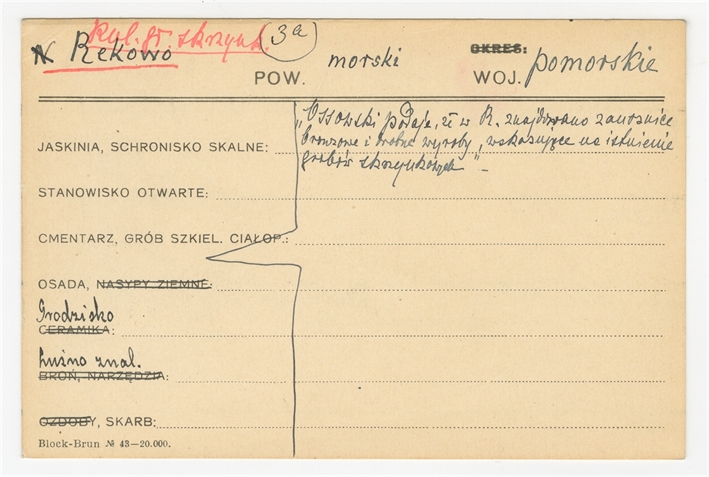 Kul. gr. skrzynk.
Rekowo
3a
POW. morski
OKRES:
WOJ. pomorskie
„Ossowski podaje, że w R. znajdowano zausznice
bronzowe i drobne wyroby, wskazujące na istnienie
grobów skrzynkowych" –
JASKINIA, SCHRONISKO SKALNE:
STANOWISKO OTWARTE:
CMENTARZ, GRÓB SZKIEL. CIAŁOP.:
OSADA, NASYPY ZIEMNE:
Grodzisko
CERAMIKA:
Luźno znal.
BROŃ, NARZĘDZIA:
OZDOBY, SKARB:
Block-Brun № 43—20.000.